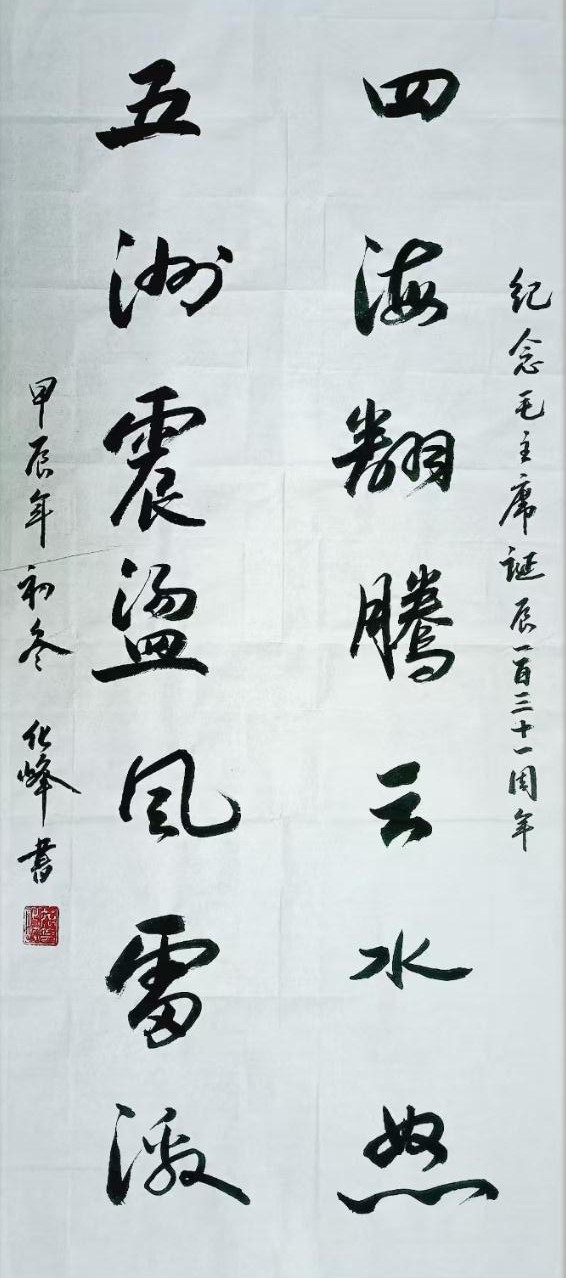 纪念毛主席诞辰一百三十一周年
四海翻腾云水怒
五洲震盪风雷激
甲辰年初冬 化峰书